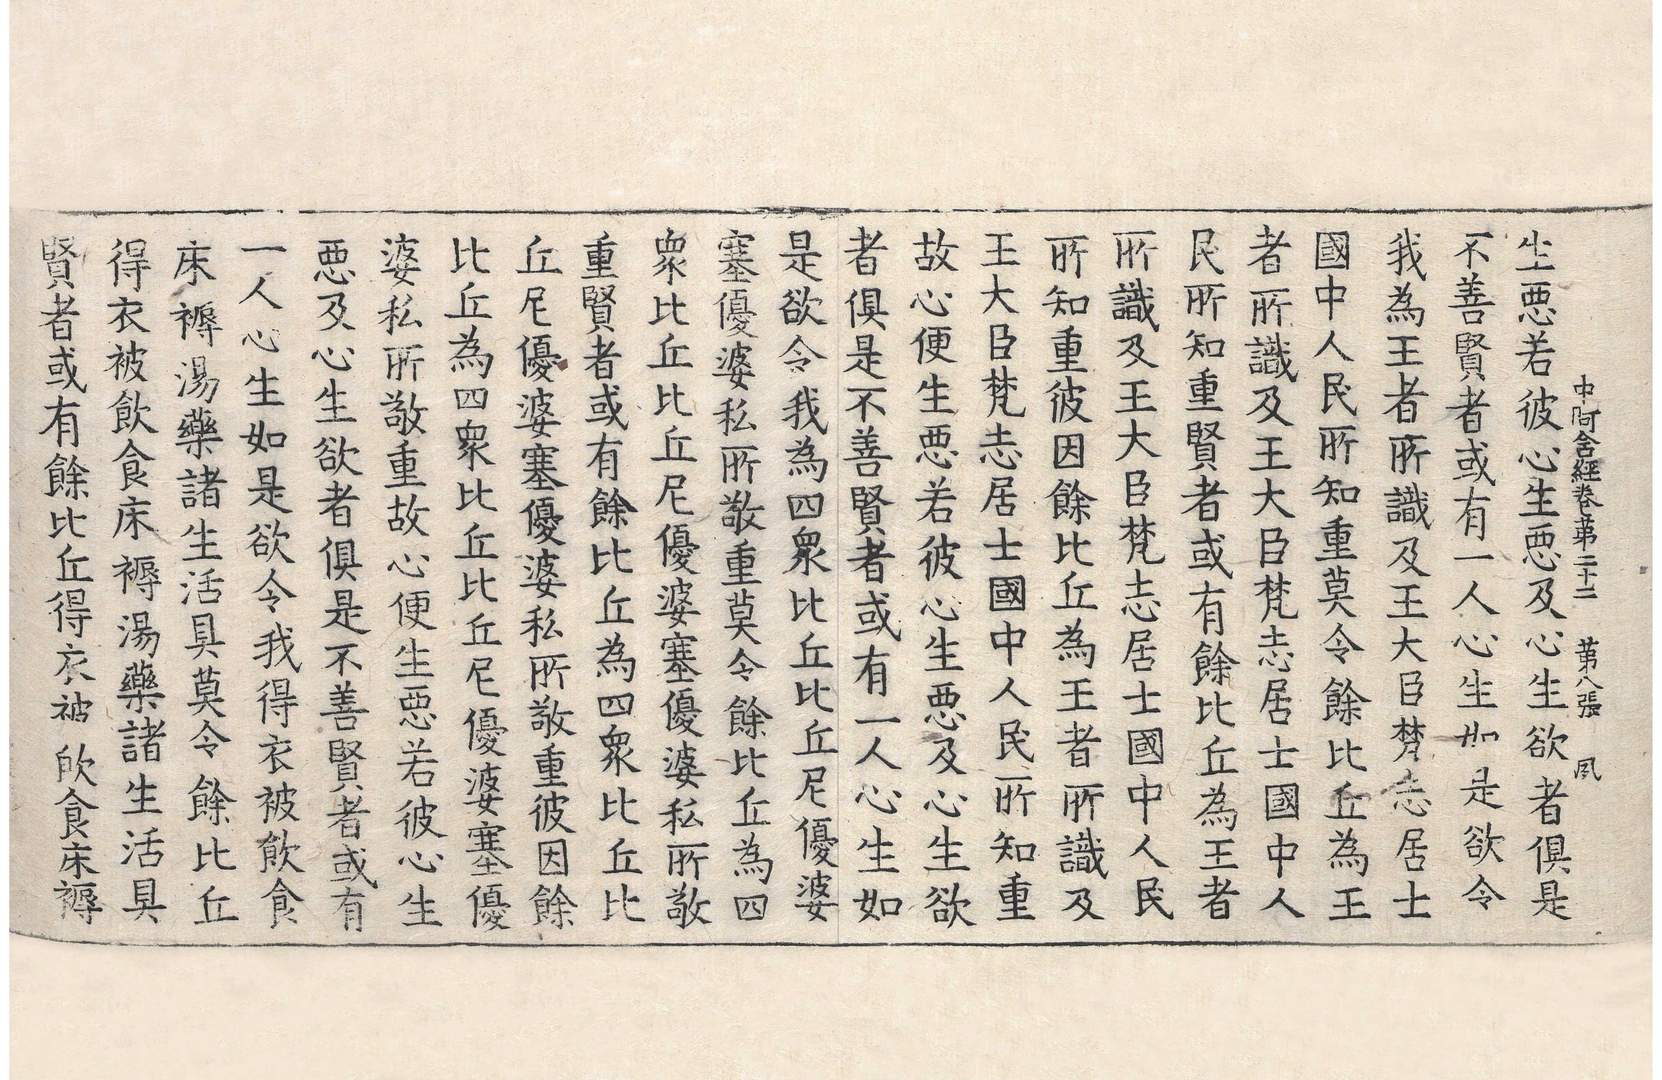 中阿含經卷苐二十二 苐八張 夙
生悪若彼心生悪及心生欲者俱是
不善賢者或有一人心生如是欲令
我為王者所識及王大臣梵志居士
國中人民所知重莫令餘比丘為王
者所識及王大臣梵志居士國中人
民所知重賢者或有餘比丘為王者
所識及王大臣梵志居士國中人民
所知重彼因餘比丘為王者所識及
王大臣梵志居士國中人民所知重
故心便生悪若彼心生悪及心生欲
者俱是不善賢者或有一人心生如
是欲令我為四衆比丘比丘尼優婆
塞優婆私所敬重莫令餘比丘為四
衆比丘比丘尼優婆塞優婆私所敬
重賢者或有餘比丘為四衆比丘比
丘尼優婆塞優婆私所敬重彼因餘
比丘為四衆比丘比丘尼優婆塞優
婆私所敬重故心便生悪若彼心生
悪及心生欲者俱是不善賢者或有
一人心生如是欲令我得衣被飲食
床褥湯藥諸生活具莫令餘比丘
得衣被飲食床褥湯藥諸生活具
賢者或有餘比丘得衣被飲食床褥